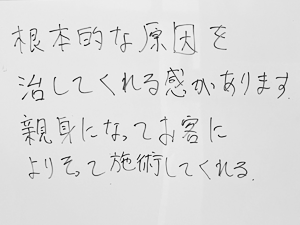 根本的な原因を
治してくれる感があります.
親身になってお客に
よりそって施術してくれる.